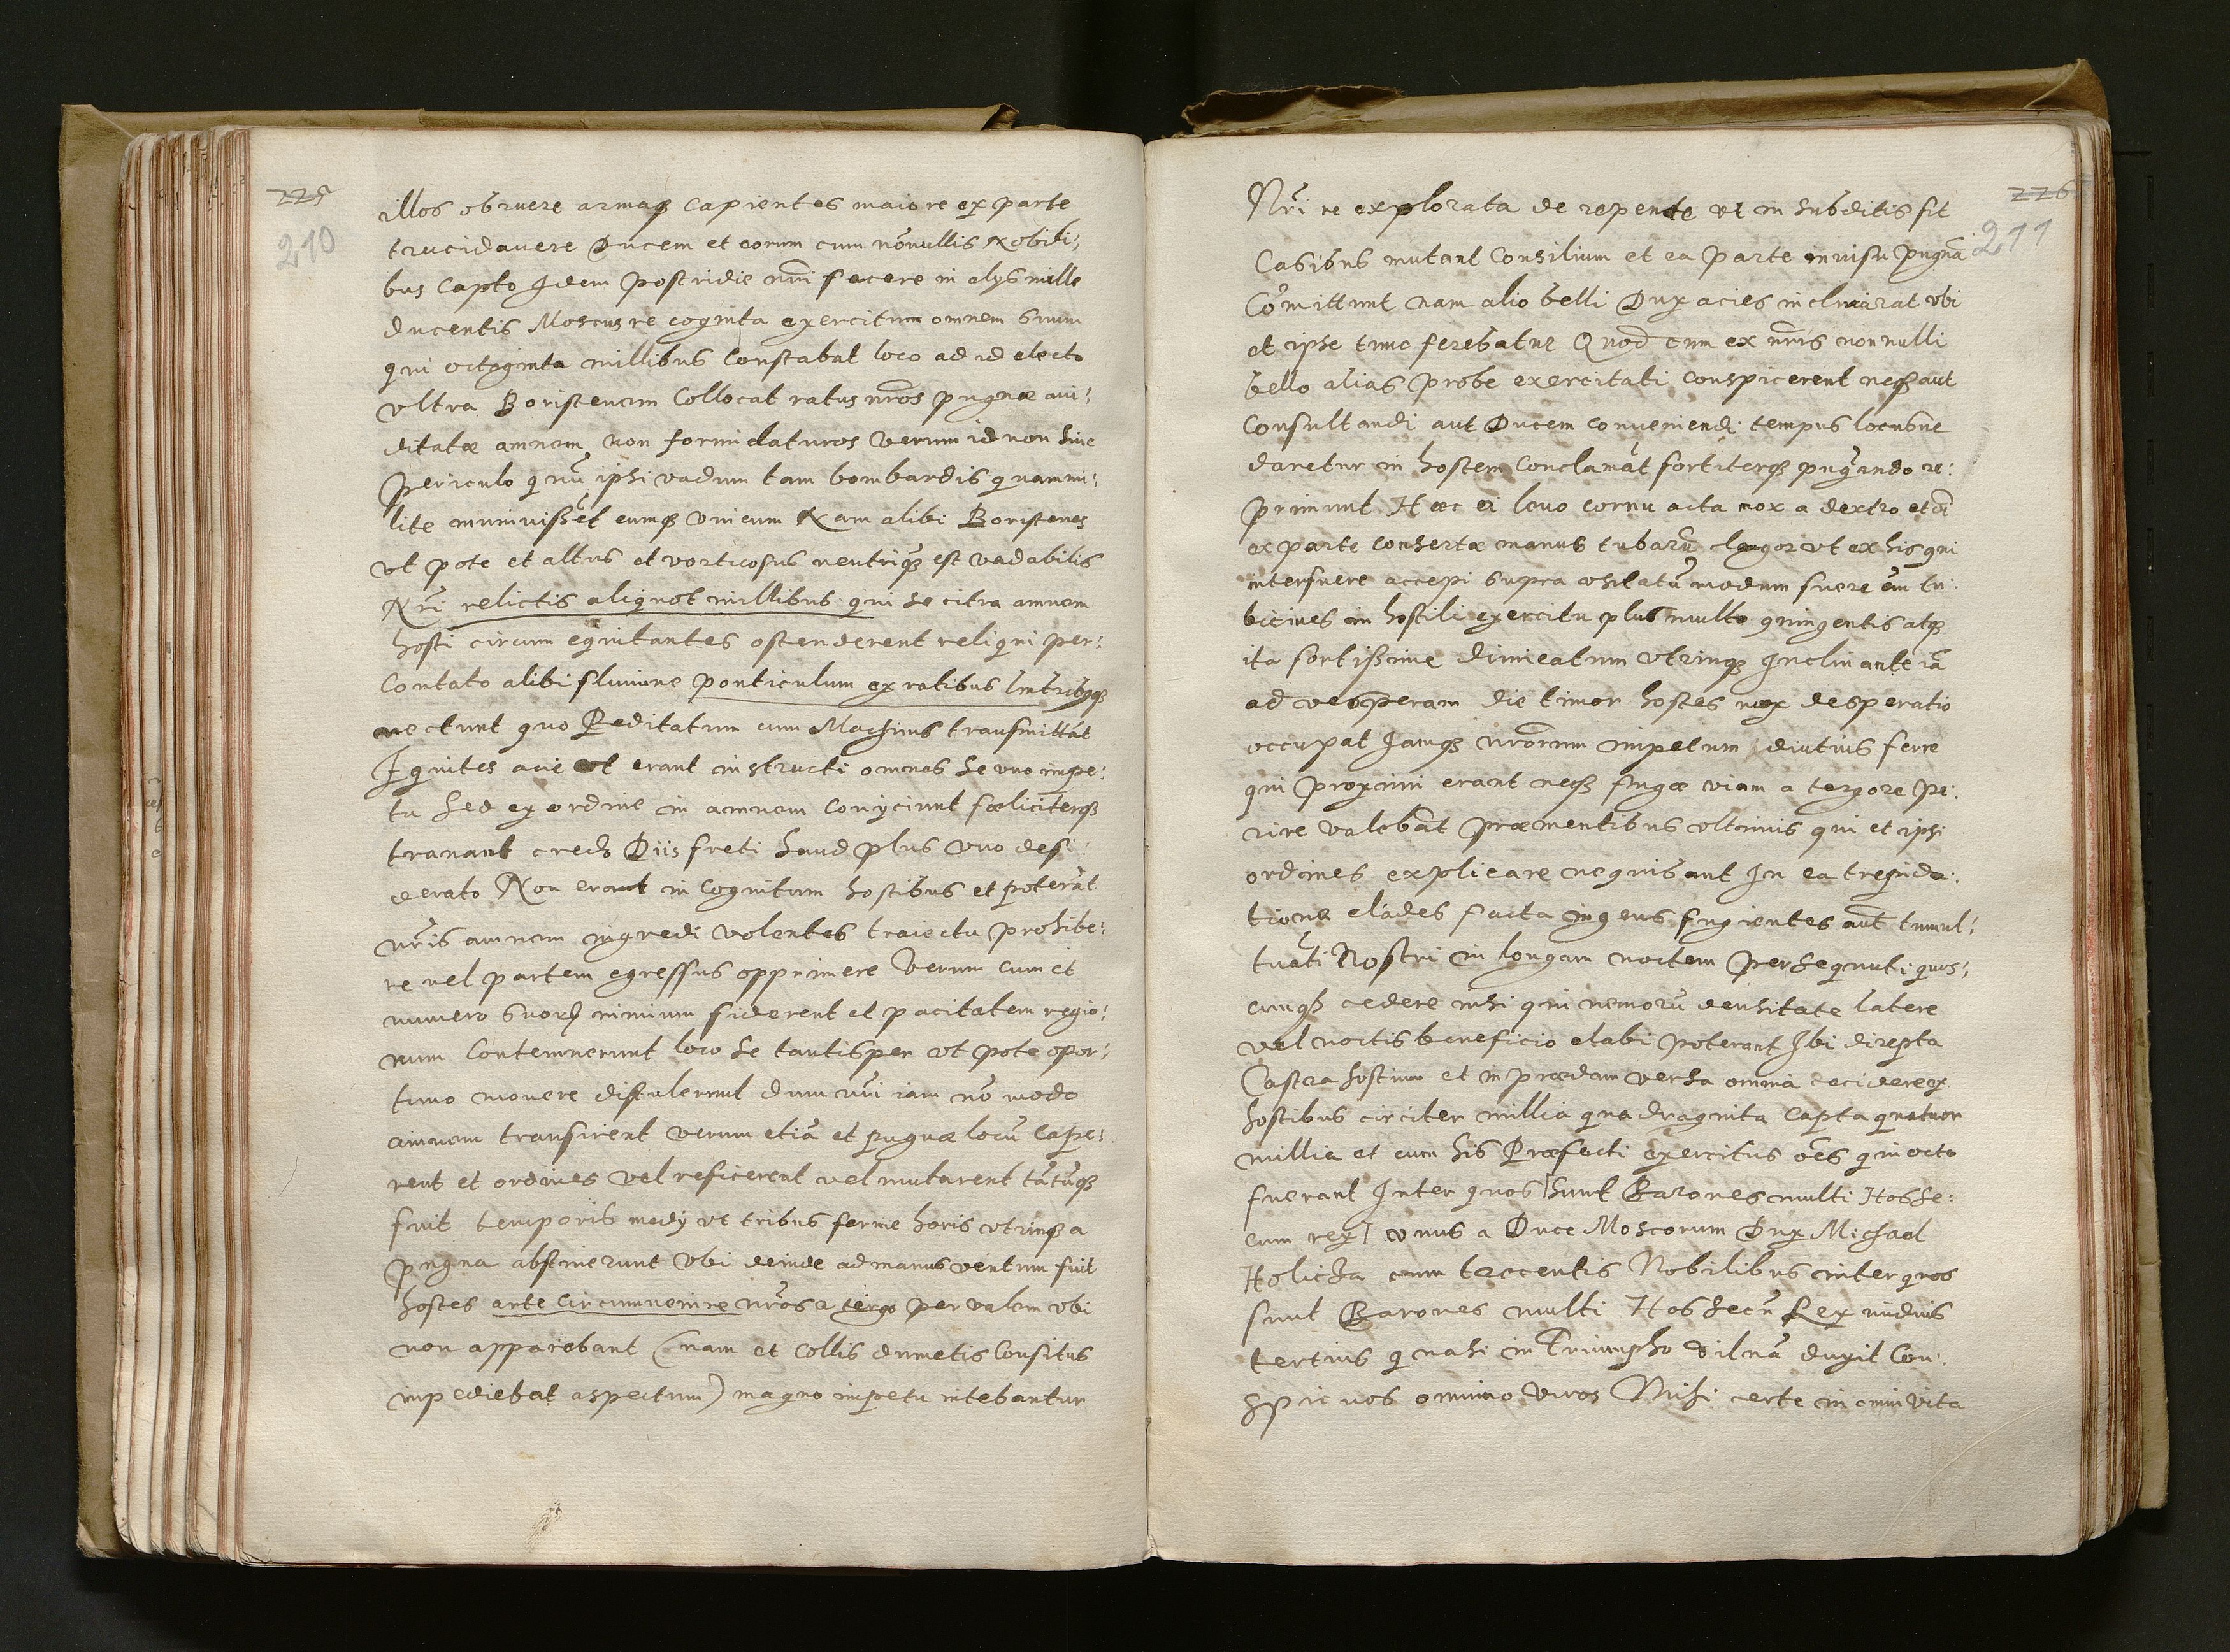 225
210
illos obruere armaq; capientes maiore ex parte
trucidauere Ducem et eorum cum nōnullis Nobili:
bus capto Idem postridie nr̄i fecere in alys mille
ducentis Moscus re cognita exercitum omnem suum
qui octoginta millibus constabat loco ad id electo
vltra Boristenem collocat ratus nr̄os pugnæ aui:
ditatæ amnem non formidaturos verum id non sine
periculo q̄ nū ipsi vadum tam bombardis quam mi:
lite muniuissēt eumq; vnicum Nam alibi Boristenes
vt pote et altus et vorticosus neutriq; est vadabilis
Nr̄i relictis aliquot millibus qui se citra amnem
hosti circum equitantes ostenderent reliqui per:
contato alibi flumine ponticulum ex ratibus lintribusq;
nectunt quo Peditatum cum Machinis transmittāt
Equites acie vt erant instructi omnes se vno impe:
tu sed ex ordine in amnem conyciunt fœliciterq;
tranant credo Diis freti haud plus vno desi:
derato Non erant in cognitum hostibus et poterāt
nr̄is amnem ingredi volentes traiectu prohibe:
re vel partem egressus opprimere Verum cum et
numero suorū nimium fiderent et pacitatem regio:
num contemnerunt loco se tantisper vt pote opor:
tuno monere distulerunt dum nr̄i iam nō modo
amnem transirent verum etiā et pugnæ locū cape:
rent et ordines vel reficerent vel mutarent tātūq;
fuit temporis medy vt tribus ferme horis vtrinq; a
pugna abstinerunt Vbi deinde ad manus ventum fuit
hostes arte circumuenire nr̄os a tergo per valem vbi
non apparebant (nam et collis dumetis consitus
impediebat aspectum) magno impetu nitebantur
226
211
Nr̄i re explorata de repente vt in subditis fit
Casibus mutant Consilium et ea parte inuisu pugnā
Cōmittunt nam alio belli Dux acies inclinarat vbi
et ipse tunc ferebatur Quod cum ex nr̄is nonnulli
bello alias probe exercitati conspicerent neq; aut
consultandi aut Ducem conueniendi tempus locusue
daretur in hostem conclamāt fortiterq; pugnando re:
primunt Hæc ei leuo cornu acta mox a dextro et oī
ex parte consertæ manus tubarū clangor vt ex his qui
interfuere accepi supra vsitatū modum fuere eīm tu:
bicines in hostili exercitu plus multo quingentis atq;
ita fortissime dimicatum vtrinq; Inclinante iā
ad vesperam die timor hostes mox desperatio
occupat Iamq; nr̄orum impetum diutius ferre
qui proximi erant neq; fugæ viam a tergore pe:
rire valebāt præmentibus vltimis qui et ipsi
ordines explicare nequibant In ea trepida:
tione clades facta ingens fugientes aut tumul:
tuāti Nostri in longam noctem persequuti quos:
cunq; cedere nisi qui nemorū densitate latere
vel noctis beneficio elabi poterant Ibi direpta
Castra hostium et in prædam versa omnia cecidere ex
hostibus circiter millia quadraginta capta quatuor
millia et cum his Præfecti exercitus oēs qui octo
fuerant Inter quos [sunt Barones multi Hos se:
cum rex] vnus a Duce Moscorum Dux Michael
Holicza cum trecentis Nobilibus inter quos
sunt Barones multi Hos secū Rex nudius
tertius quasi in Triumpho Vilnā duxit con:
spicuos omnino viros Mihi certe in omni vita